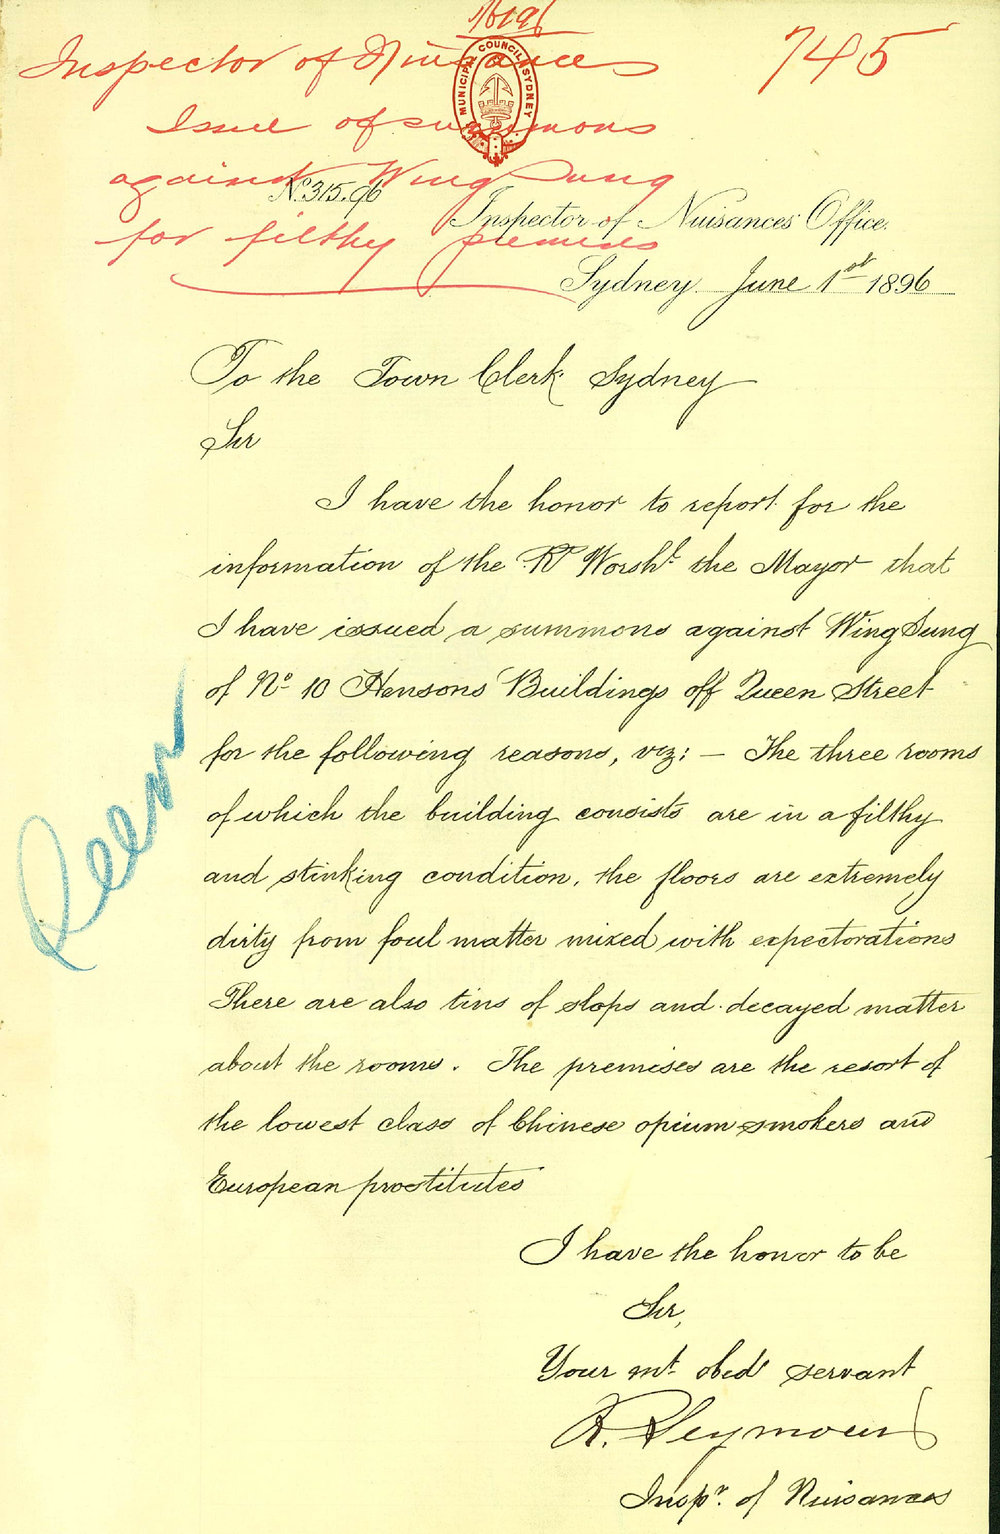 745
Inspector of Nuisances
Issue of summons
against Wing Sung
for filthy premises
MUNICIPAL COUNCIL SYDNEY
No. 315.96
Inspector of Nuisances' Office.
Sydney June 1st 1896
To the Town Clerk Sydney
Sir
I have the honor to report for the
information of the Rt Worshl the Mayor that
I have issued a summons against Wing Sung
of No 10 Hensons Buildings off Queen Street
for the following reasons, viz: — The three rooms
of which the building consists are in a filthy
and stinking condition, the floors are extremely
dirty from foul matter mixed with expectorations
There are also tins of slops and decayed matter
about the rooms. The premises are the resort of
the lowest class of Chinese opium smokers and
European prostitutes
I have the honor to be
Sir,
Your mt obedt servant
R. Seymour
Inspr. of Nuisances